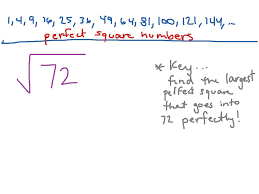 1, 4, 9, 16, 25, 36, 49, 64, 81, 100, 121, 144, ...
perfect square numbers
√72
* Key...
find the largest
perfect square
that goes into
72 perfectly!